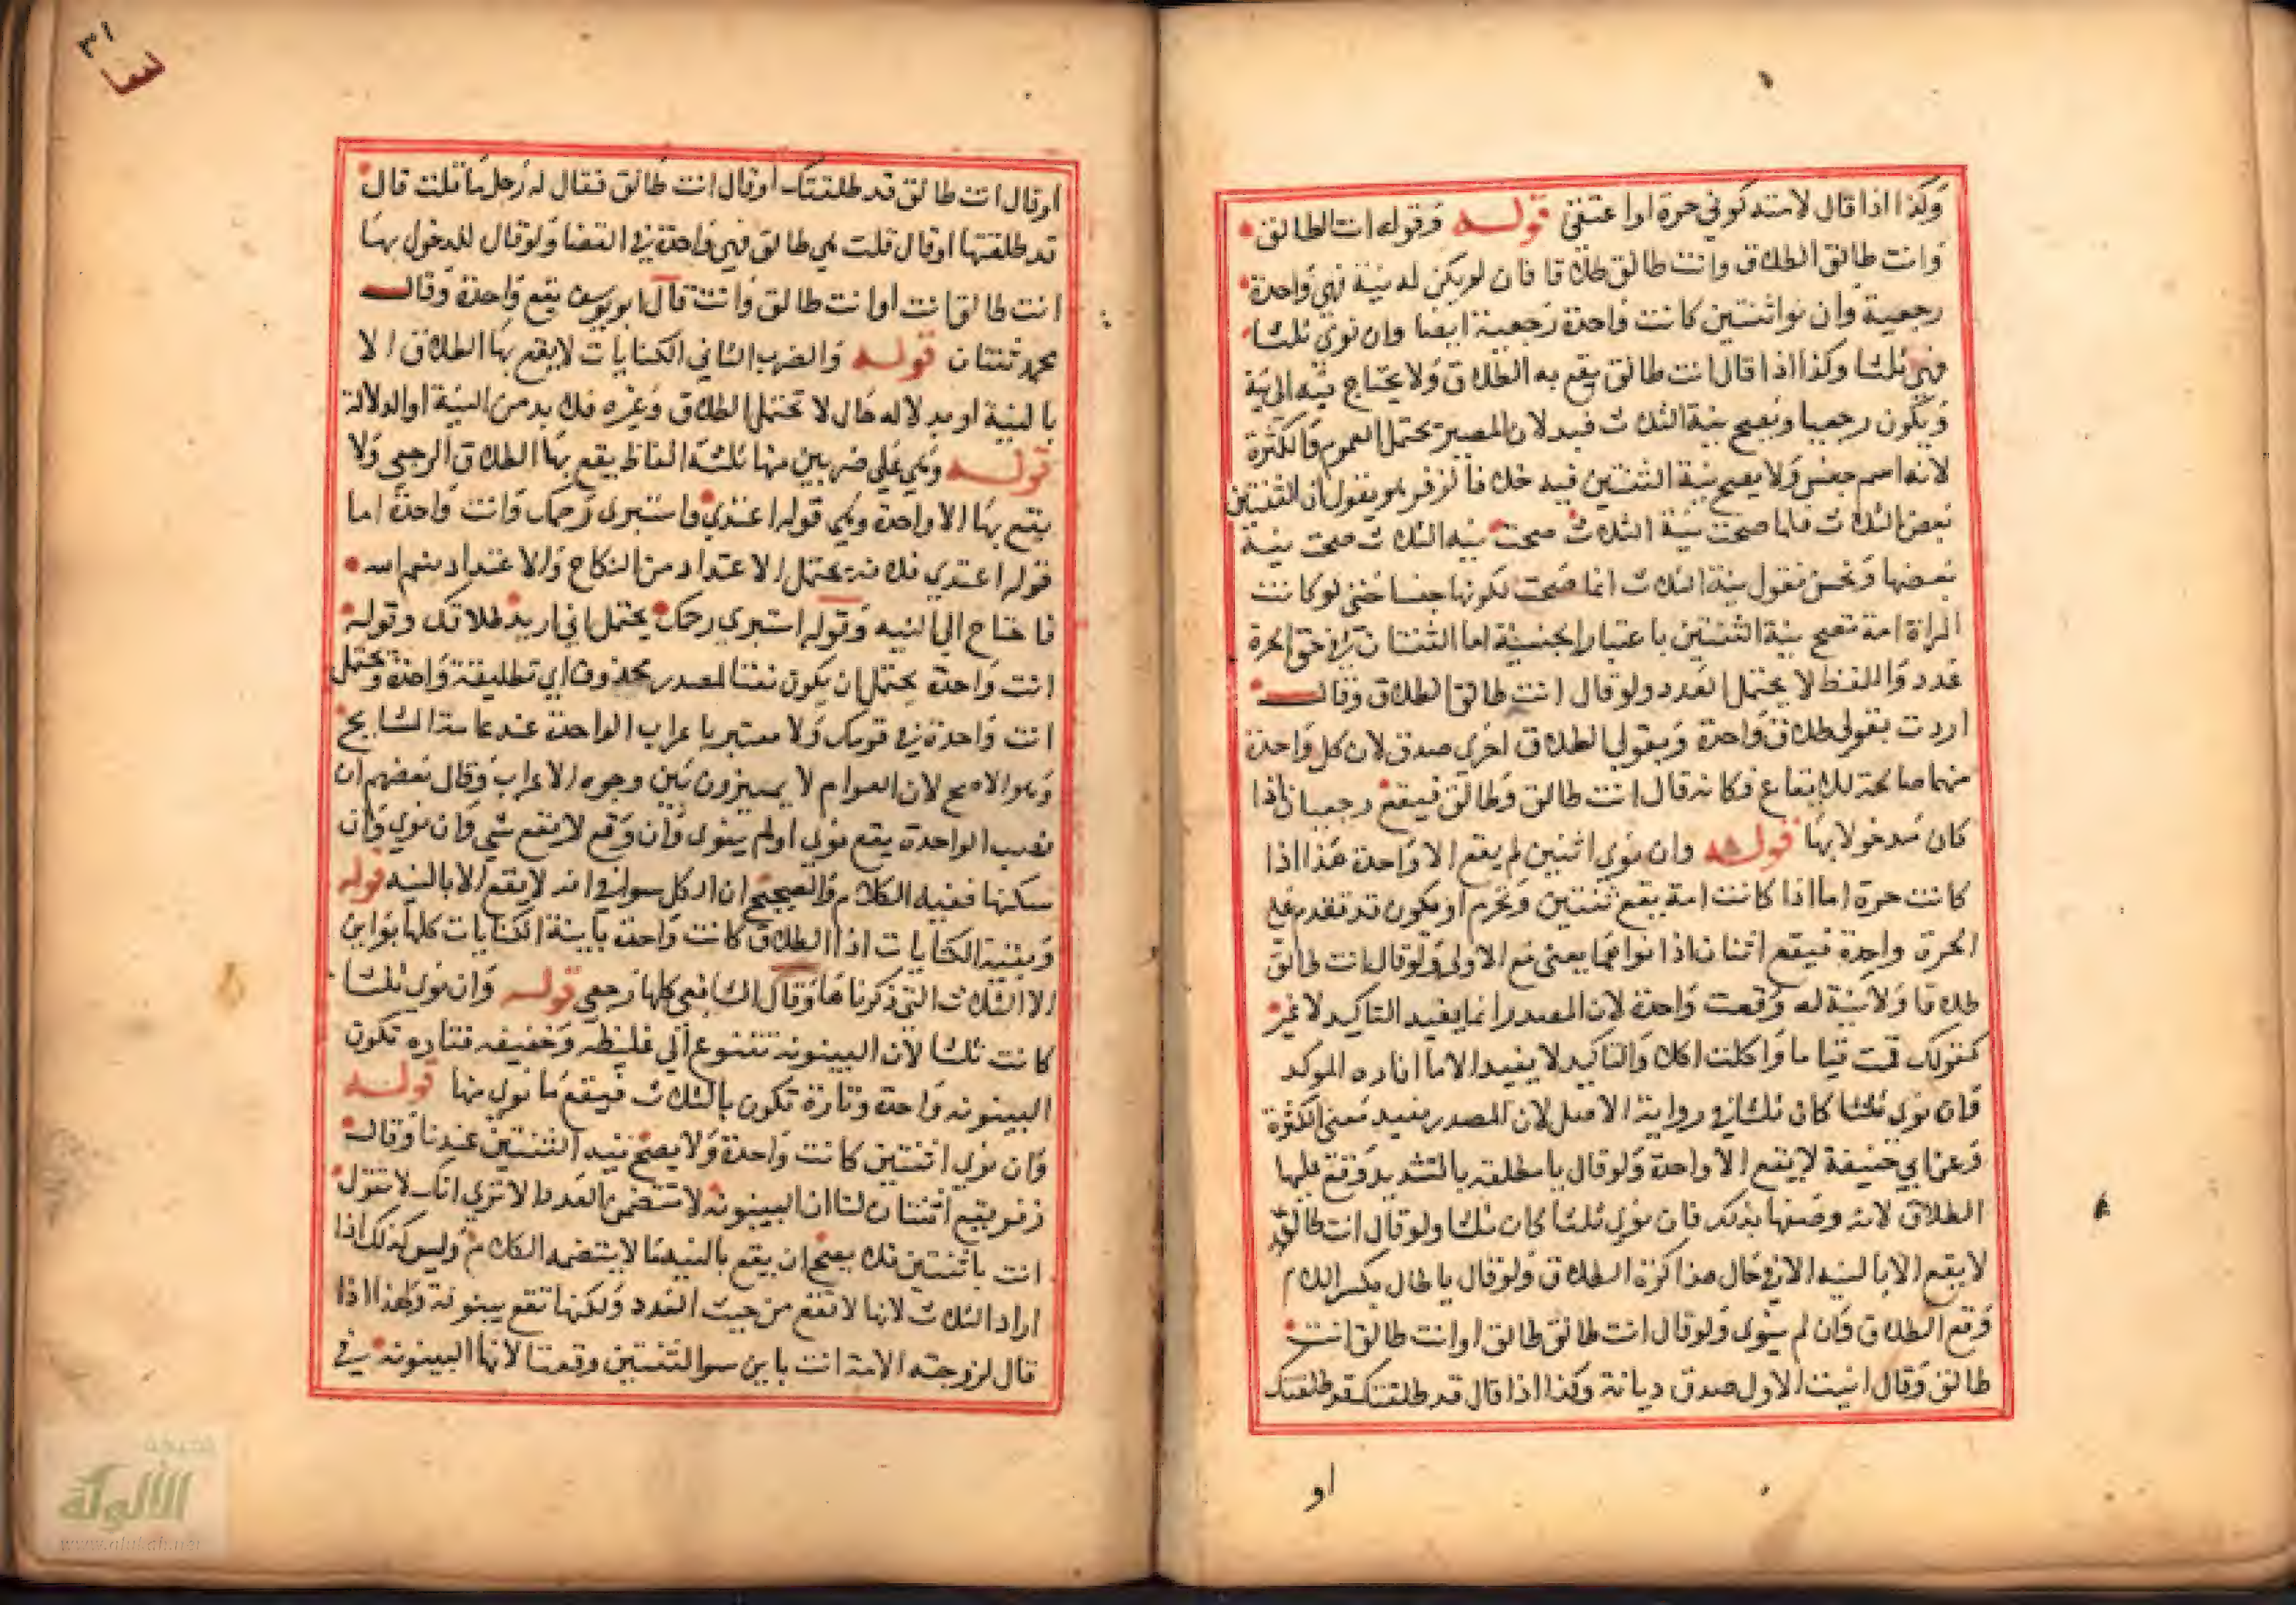 وكذا اذا قال لامته كوني حرة او اعتقني قوله وقوله انت الطالق
وانت طالق الطلاق وانت طالق طلاقا فان لم يكن له نية فهي واحدة
رجعية وان نوا ثنتين كانت واحدة رجعية ايضا وان نوى ثلثا
فهي ثلثا وكذا اذا قال انت طالق يقع به الطلاق ولا يحتاج فيه الى نية
ويكون رجعيا ويصح نية الثلاث فيه لان المصدر يحتمل العموم والكثرة
لانه اسم جنس ولا يصح نية الثنتين فيه خلافا لزفر هو يقول ان الثنتين
بعض الثلاث فلما صحت نية الثلاث صحت نيه الثلاث صحت نية
بعضها ونحن نقول نية الثلاث انما صحت لكونها جنسا حتى لو كانت
المراة امة تصح نية الثنتين باعتبار الجنسية اما الثنتان في حق الحرة
عدد واللفظ لا يحتمل العدد ولو قال انت طالق الطلاق وقال
اردت بقولي طلاق واحدة وبقولي الطلاق اخرى صدق لان كل واحدة
منهما صالحة للايقاع فكانه قال انت طالق وطالق فيقع رجعيا اذا
كان مدخولا بها قوله وان نوى اثنين لم يقع الا واحدة هذا اذا
كانت حرة اما اذا كانت امة يقع ثنتين وتحرم او يكون قد تقدم على
الحرة واحدة فيقع اثنتان اذا نواهما يعني مع الاولى ولو قال انت طالق
طلاقا ولا نية له وقعت واحدة لان المصدر انما يفيد التاكيد لا غير
كقولك قمت قياما واكلت اكلا والتاكيد لا يفيد الا ما افاده الموكد
فان نوى ثلثا كان ثلثا في رواية الاصل لان المصدر يفيد معنى الكثرة
وعن ابي حنيفة لا يقع الا واحدة ولو قال يا مطلقه بالتشديد وقع عليها
الطلاق لانه وصفها بذلك فان نوى ثلثا كان ثلثا ولو قال انت طالق
لا يقع الا بالنيه الا في حال مذاكرة الطلاق ولو قال يا طال بكسر اللام
وقع الطلاق وان لم ينوى ولو قال انت طالق طالق او انت طالق انت
طالق وقال انيت الاول صدق ديانة وكذا اذا قال قد طلقتك قد طلقتك
او
٣١
او قال انت طالق قد طلقتك او قال انت طالق فقال له رجل ما قلت قال
قد طلقتها او قال قلت هي طالق فهي واحدة في القضا ولو قال للمدخول بها
انت طالق انت او انت طالق وانت قال ابو يوسف يقع واحدة وقال
محمد ثنتان قوله والضرب الثاني الكنايات لا يقع بها الطلاق الا
بالنية او بدلاله حال لا تحتمل الطلاق وغيره فلا بد من النية او الدلالة
قوله وهي على ضربين منها ثلثة الفاظ يقع بها الطلاق الرجعي ولا
يقع بها الا واحدة وهي قوله اعتدي واستبري رحمك وانت واحدة اما
قوله اعتدي فلانه يحتمل الاعتداد من النكاح والاعتداد بنعم الله
فاحتاج الى النيه وقوله استبري رحمك يحتمل اني اريد طلاقك وقوله
انت واحدة يحتمل ان يكون نعتا لمصدر محذوف اي تطليقة واحدة ويحتمل
انت واحدة في قومك ولا معتبر باعراب الواحدة عند عامة المشايخ
وهو الاصح لان العوام لا يميزون بين وجوه الاعراب وقال بعضهم ان
نصب الواحدة يقع نوى او لم ينوى وان رفع لا يقع شي وان نوى وان
سكنها ففيه الكلام والصحيح ان الكل سوا في انه لا يقع الا بالنيه قوله
وبقية الكنايات اذا الطلاق كانت واحدة باينة الكنايات كلها بواين
الا الثلاث التي ذكرناها وقال الشافعي كلها رجعي قوله وان نوى ثلثا
كانت ثلثا لان البينونه تتنوع الى غليظه وخفيفه فتاره تكون
البينونه واحدة وتارة تكون بالثلاث فيقع ما نوى منها قوله
وان نوى اثنتين كانت واحدة ولا يصح نيه الثنتين عندنا وقال
زفر يقع اثنتان لنا ان البينونه لا تتضمن العدد الا ترى انك لا تقول
انت باثنتين فلا يصح ان يقع بالنيه ما لا يتضمه الكلام وليس كذلك اذا
اراد الثلاث لانها لا تقع من حيث العدد ولكنها تقع بينونة ولهذا اذا
قال لزوجته الامة انت باين سوا لثنتين وقعتا لانها البينونه في
الألوكة
www.alukah.net